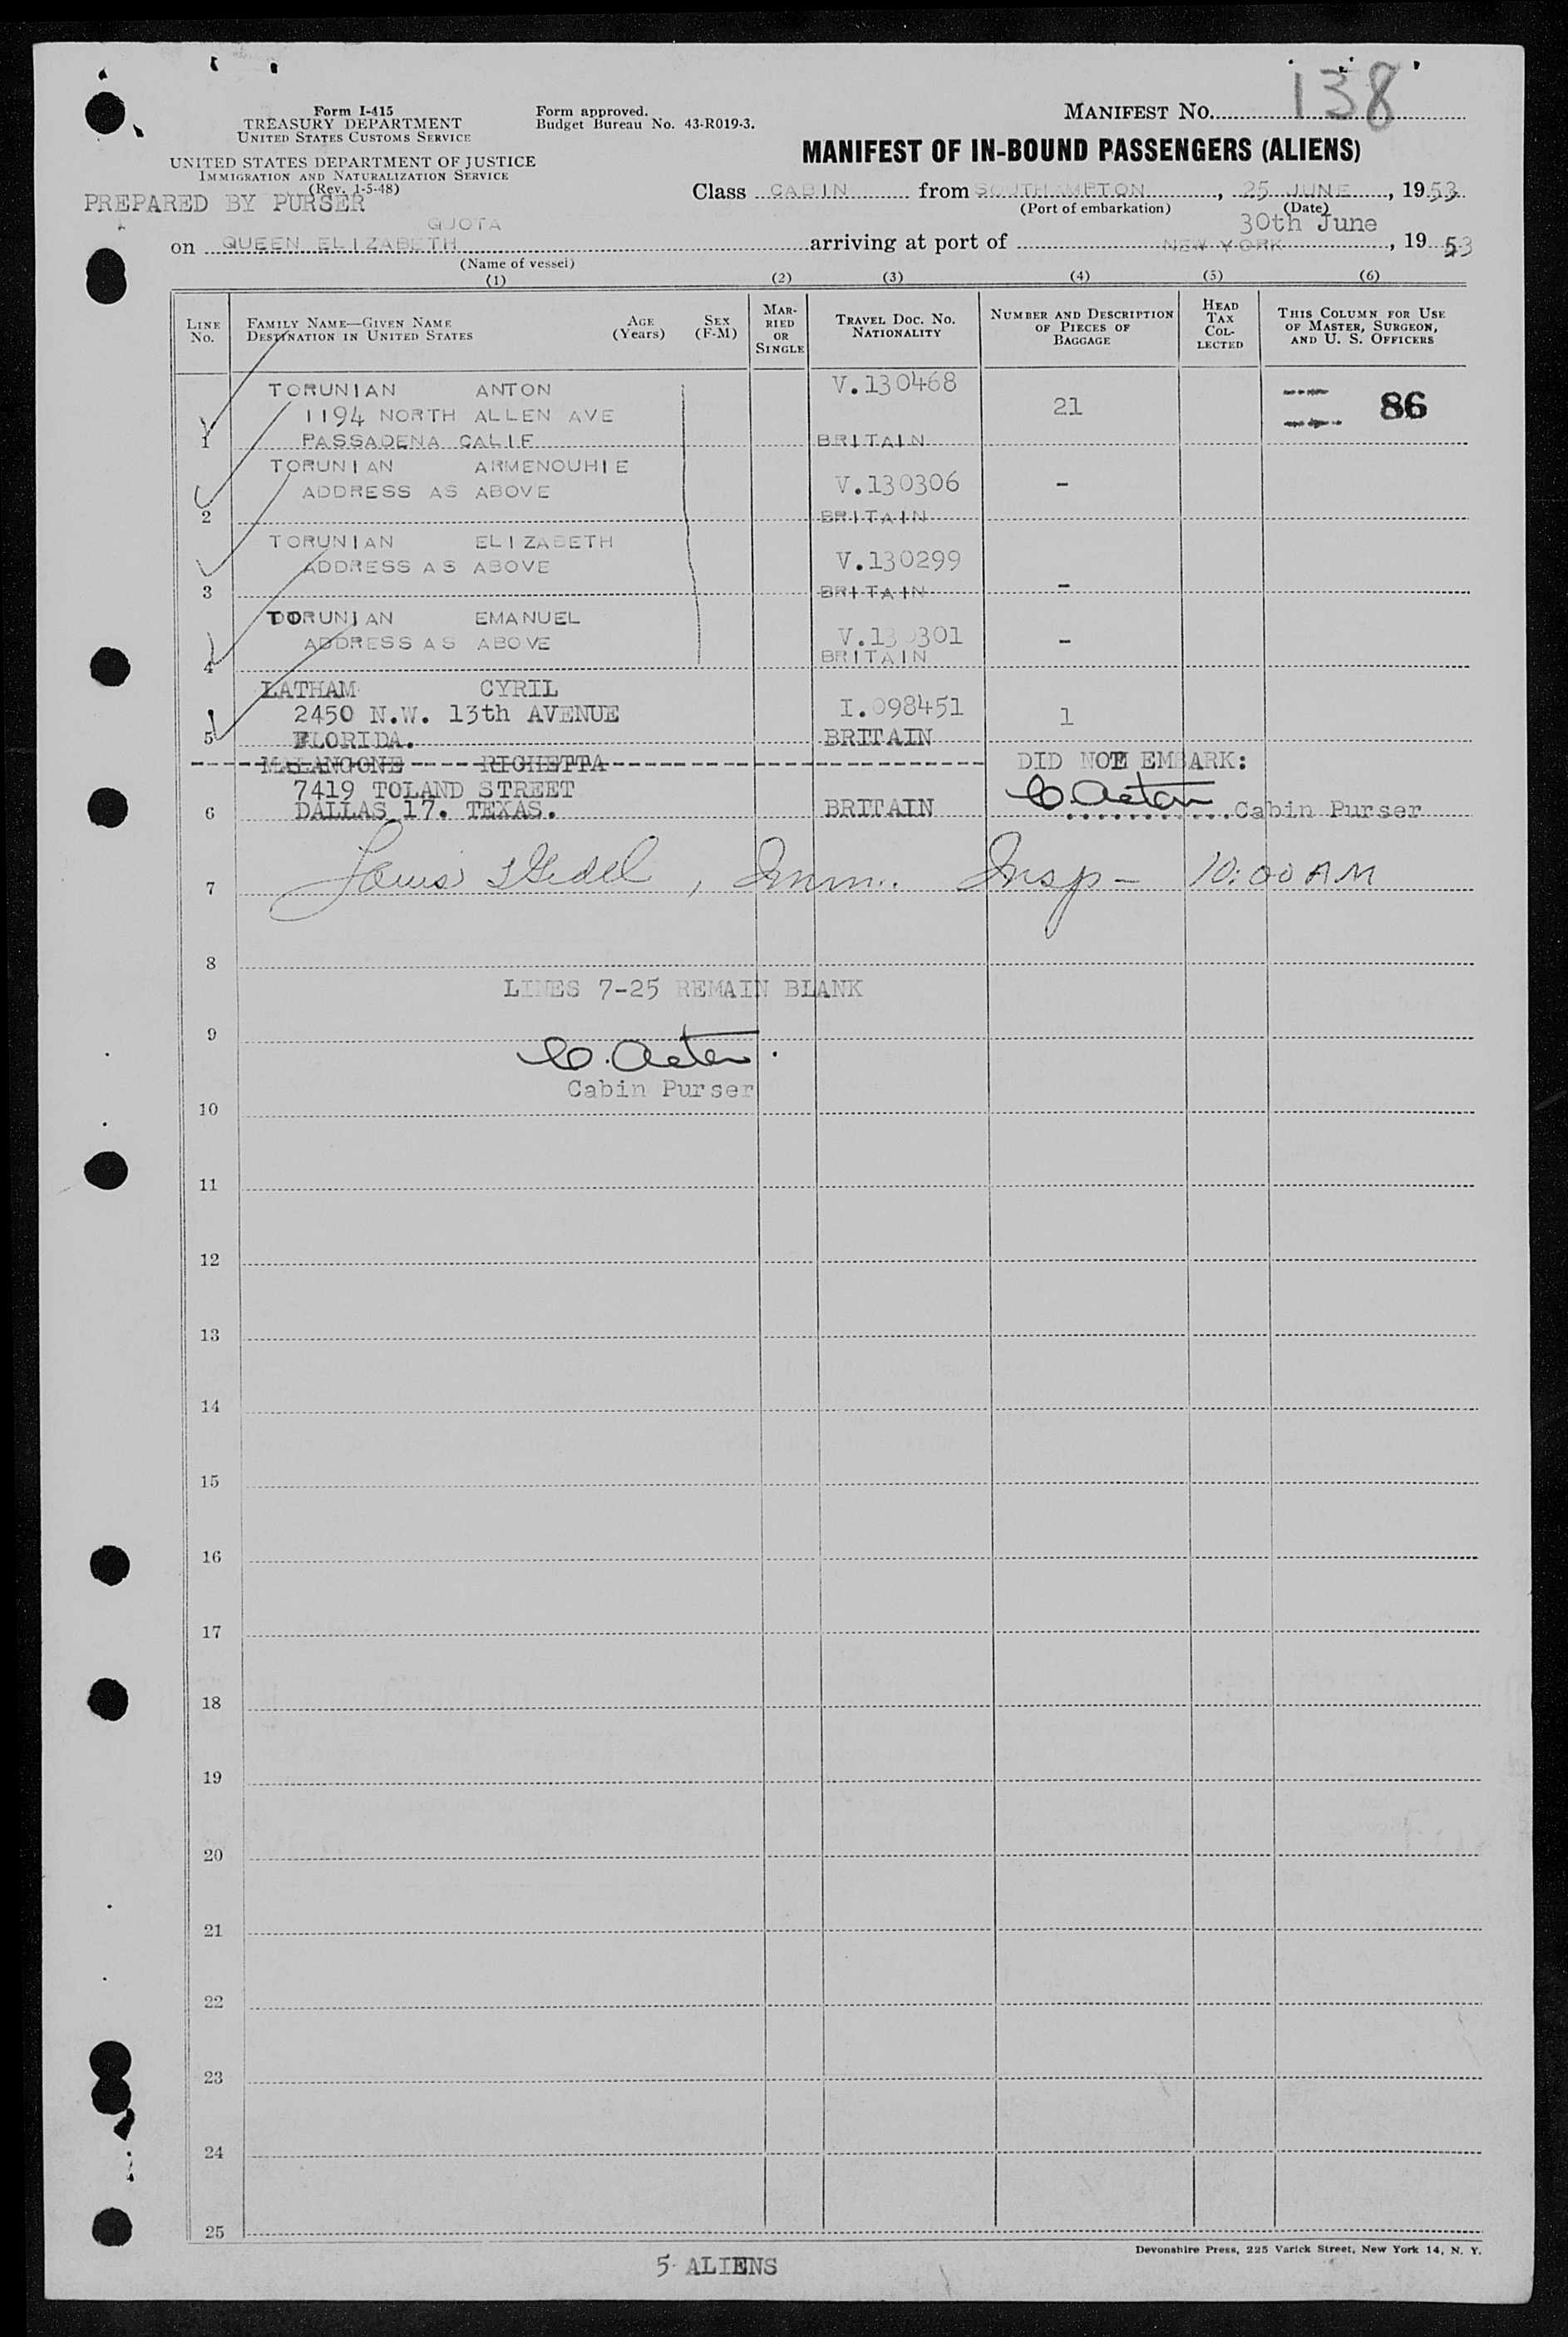 138
Form I-415
TREASURY DEPARTMENT
UNITED STATES CUSTOMS SERVICE
Form approved.
Budget Bureau No. 43-R019-3.
MANIFEST NO.
UNITED STATES DEPARTMENT OF JUSTICE
IMMIGRATION AND NATURALIZATION SERVICE
(Rev. 1-5-48)
MANIFEST OF IN-BOUND PASSENGERS (ALIENS)
PREPARED BY PURSER
Class CABIN from SOUTHAMPTON, 25 JUNE, 1953
(Port of embarkation) (Date)
QUOTA
30th June
on QUEEN ELIZABETH arriving at port of NEW YORK, 1953
(Name of vessel)
(1) (2) (3) (4) (5) (6)
LINE NO.
FAMILY NAME—GIVEN NAME
DESTINATION IN UNITED STATES
AGE (Years)
SEX (F-M)
MARRIED OR SINGLE
TRAVEL DOC. NO.
NATIONALITY
NUMBER AND DESCRIPTION OF PIECES OF BAGGAGE
HEAD TAX COLLECTED
THIS COLUMN FOR USE OF MASTER, SURGEON, AND U. S. OFFICERS
TORUNIAN ANTON V.130468
1194 NORTH ALLEN AVE 21 86
1 PASSADENA CALIF BRITAIN
TORUNIAN ARMENOUHIE
ADDRESS AS ABOVE V.130306 -
2 BRITAIN
TORUNIAN ELIZABETH
ADDRESS AS ABOVE V.130299
3 BRITAIN -
TORUNIAN EMANUEL
ADDRESS AS ABOVE V.130301 -
4 BRITAIN
LATHAM CYRIL
2450 N.W. 13th AVENUE I.098451 1
5 FLORIDA. BRITAIN
MALANGONE RIGHETTA DID NOT EMBARK:
7419 TOLAND STREET C. Acton
6 DALLAS 17. TEXAS. BRITAIN Cabin Purser
7 Louis , Imm. Insp - 10:00 AM
8
LINES 7-25 REMAIN BLANK
9
C. Acton.
Cabin Purser
10
11
12
13
14
15
16
17
18
19
20
21
22
23
24
25
Devonshire Press, 225 Varick Street, New York 14, N. Y.
5 ALIENS